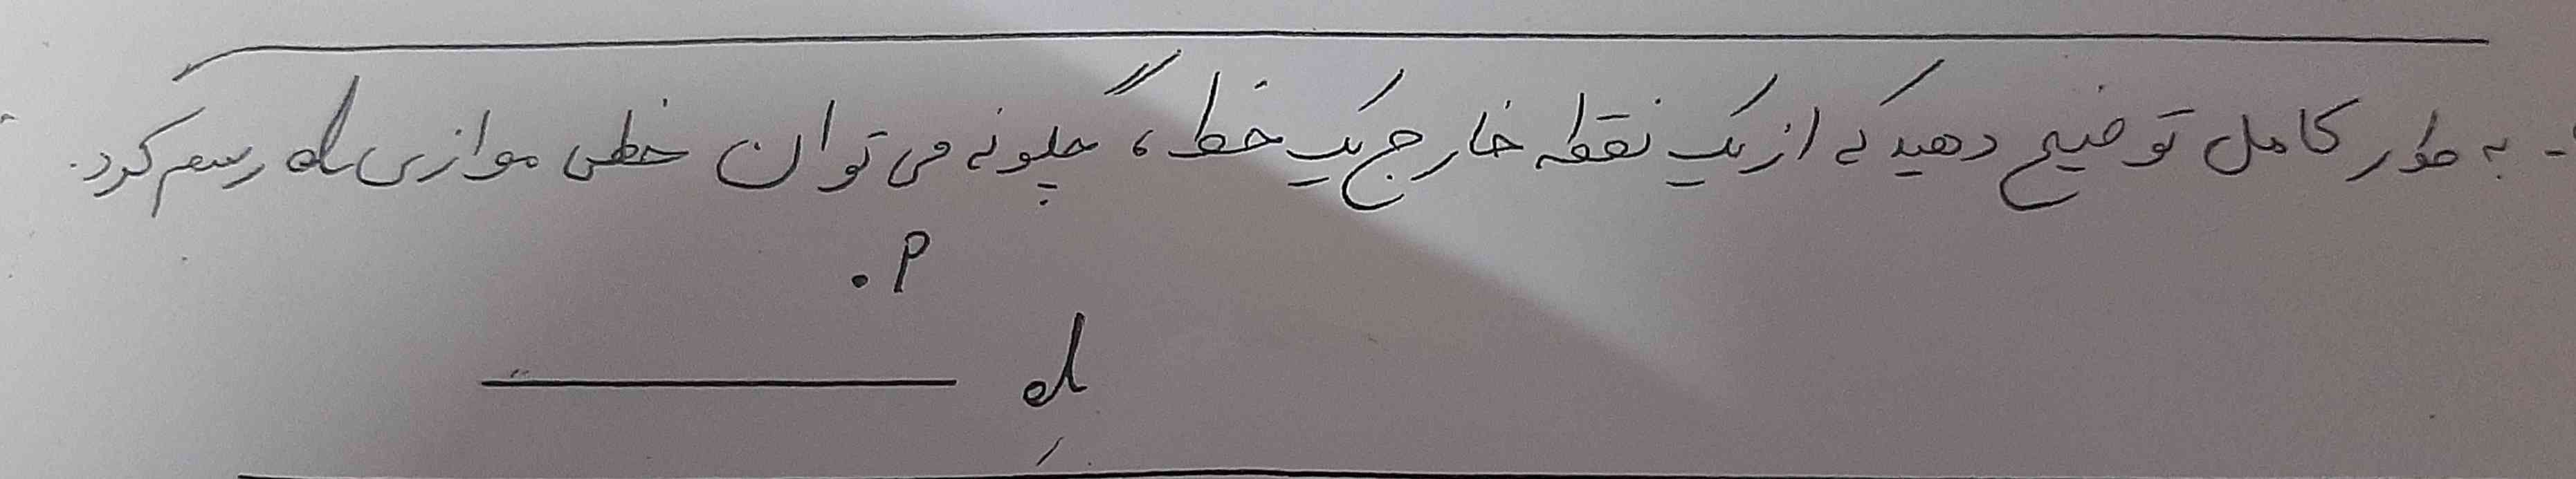 - به طور کامل توضیح دهید که از یک نقطه خارج یک خط، چگونه می توان خطی موازی d رسم کرد.
. P
d